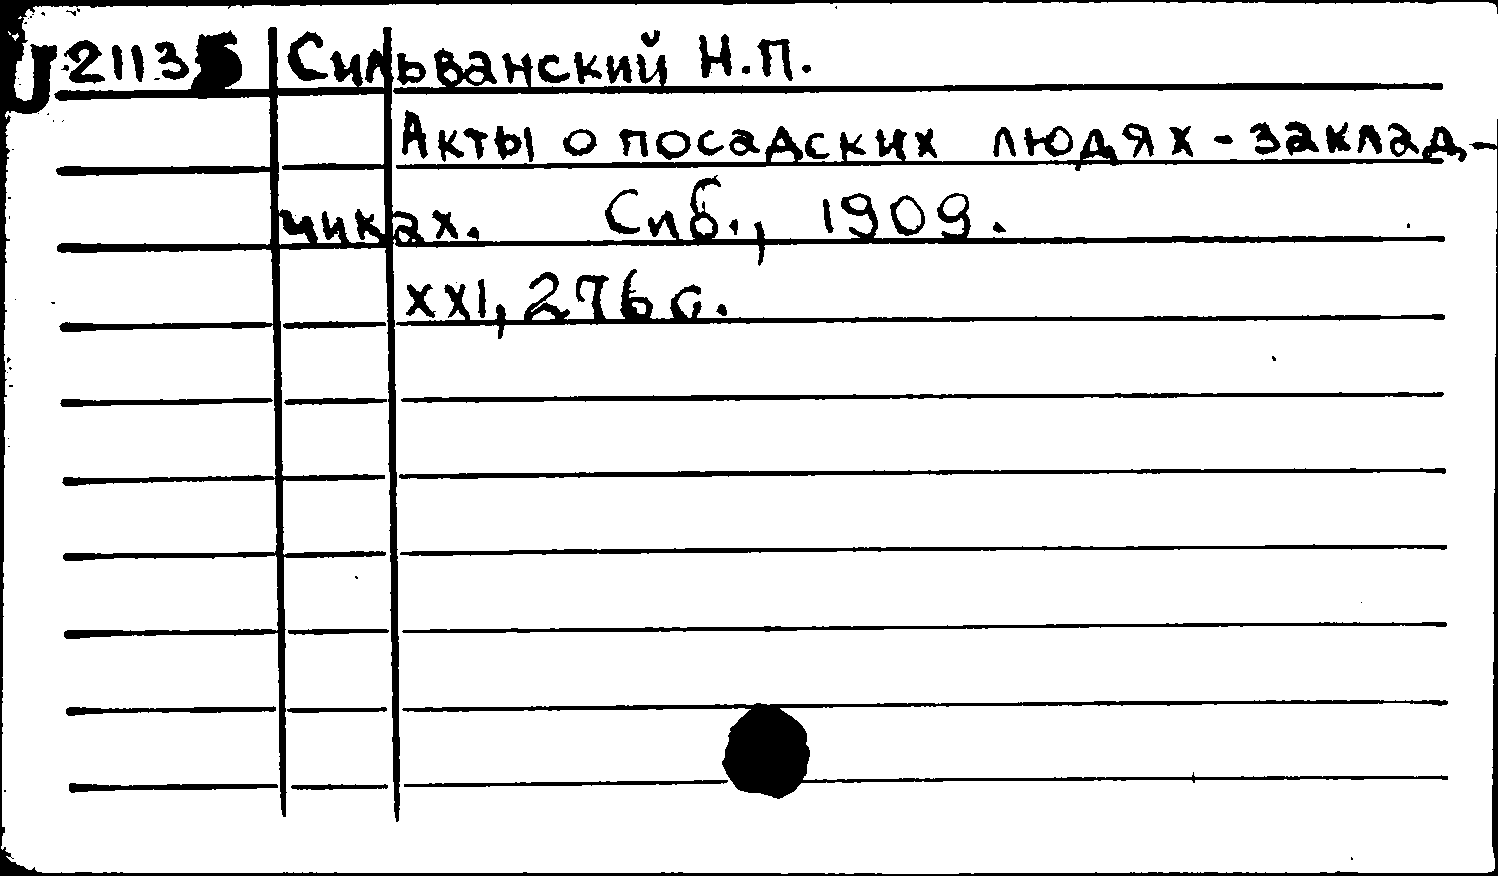 U 21135 Сильванский Н.П.
Акты о посадских людях-заклад-
чиках. Спб., 1909.
XXI, 276 с.